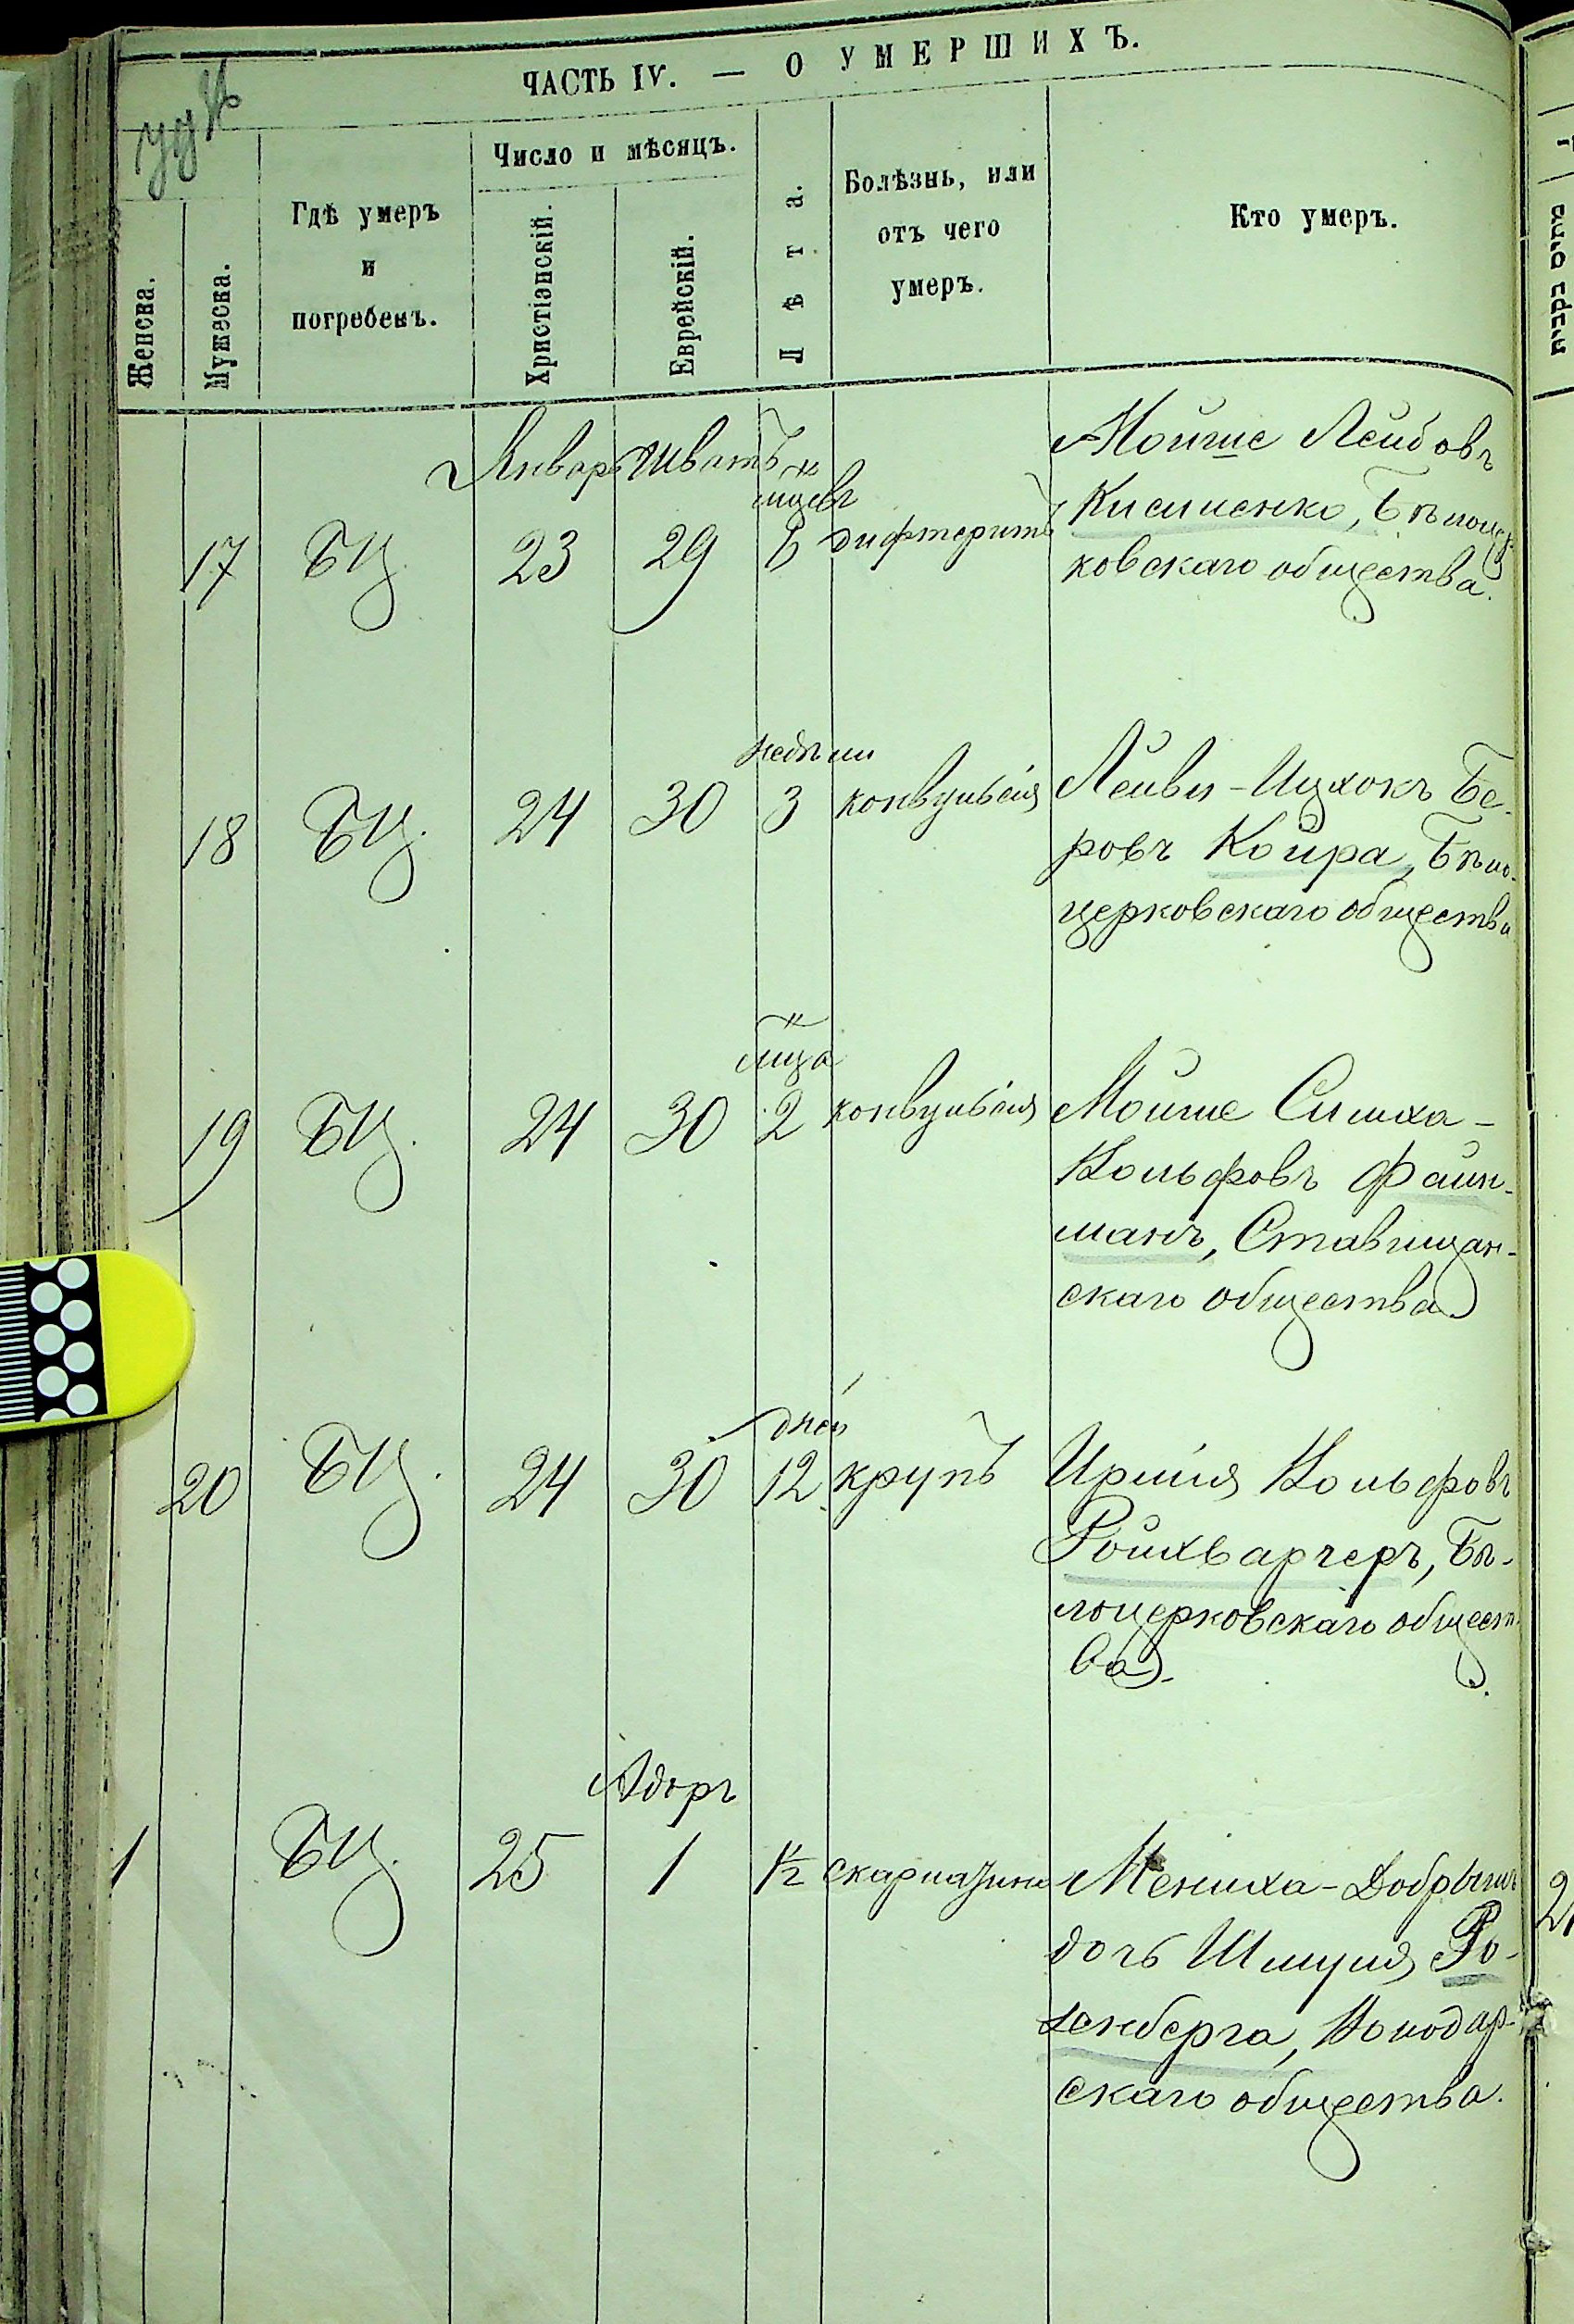 ЧАСТЬ IV. — О УМЕРШИХЪ.
Женска.
Мужеска.
Гдѣ умеръ
и
погребенъ.
Число и мѣсяцъ.
Христіанскій.
Еврейскій.
Лѣта.
Болѣзнь, или
отъ чего
умеръ.
Кто умеръ.
Январь Шватъ
17 БЦ. 23 29 мцевъ 6 дифтеритъ
Мойше Лейбовъ
Кисиленко, Бѣлоцер-
ковскаго общества.
18 БЦ. 24 30 недѣли 3 конвульсія
Лейви-Ицхокъ Бе-
ровъ Койра, Бѣло-
церковскаго общества
19 БЦ. 24 30 мца 2 конвульсія
Мойше Симха-
Вольфовъ Файн-
манъ, Ставищан-
скаго общества
20 БЦ. 24 30 дней 12 крупъ
Ирмія Вольфовъ
Ройхваргеръ, Бѣ-
лоцерковскаго общест-
ва.
Адоръ
1 БЦ. 25 1 1½ скарлатина
дочь Шмуля Ро-
зенберга,
скаго общества.